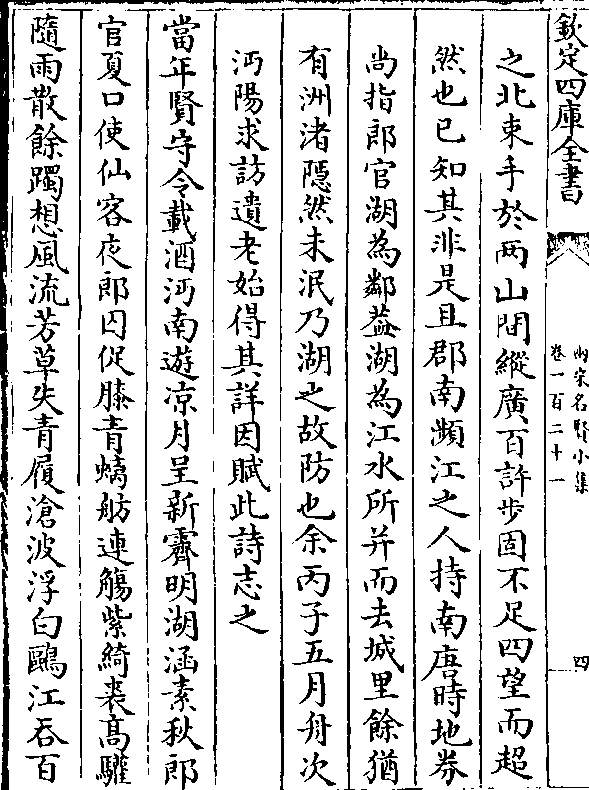 欽定四庫全書
兩宋名賢小集
卷一百二十一
四
之北束手於兩山間縱廣百許步固不足四望而超
然也已知其非是且郡南瀕江之人持南唐時地券
尚指郎官湖為鄰葢湖為江水所并而去城里餘猶
有洲渚隱然未泯乃湖之故防也余丙子五月舟次
沔陽求訪遺老始得其詳因賦此詩志之
當年賢守令載酒沔南遊涼月呈新霽明湖涵素秋郎
官夏口使仙客夜郎囚促膝青螭舫連觴紫綺裘髙驩
隨雨散餘躅想風流芳草失青履滄波浮白鷗江吞百